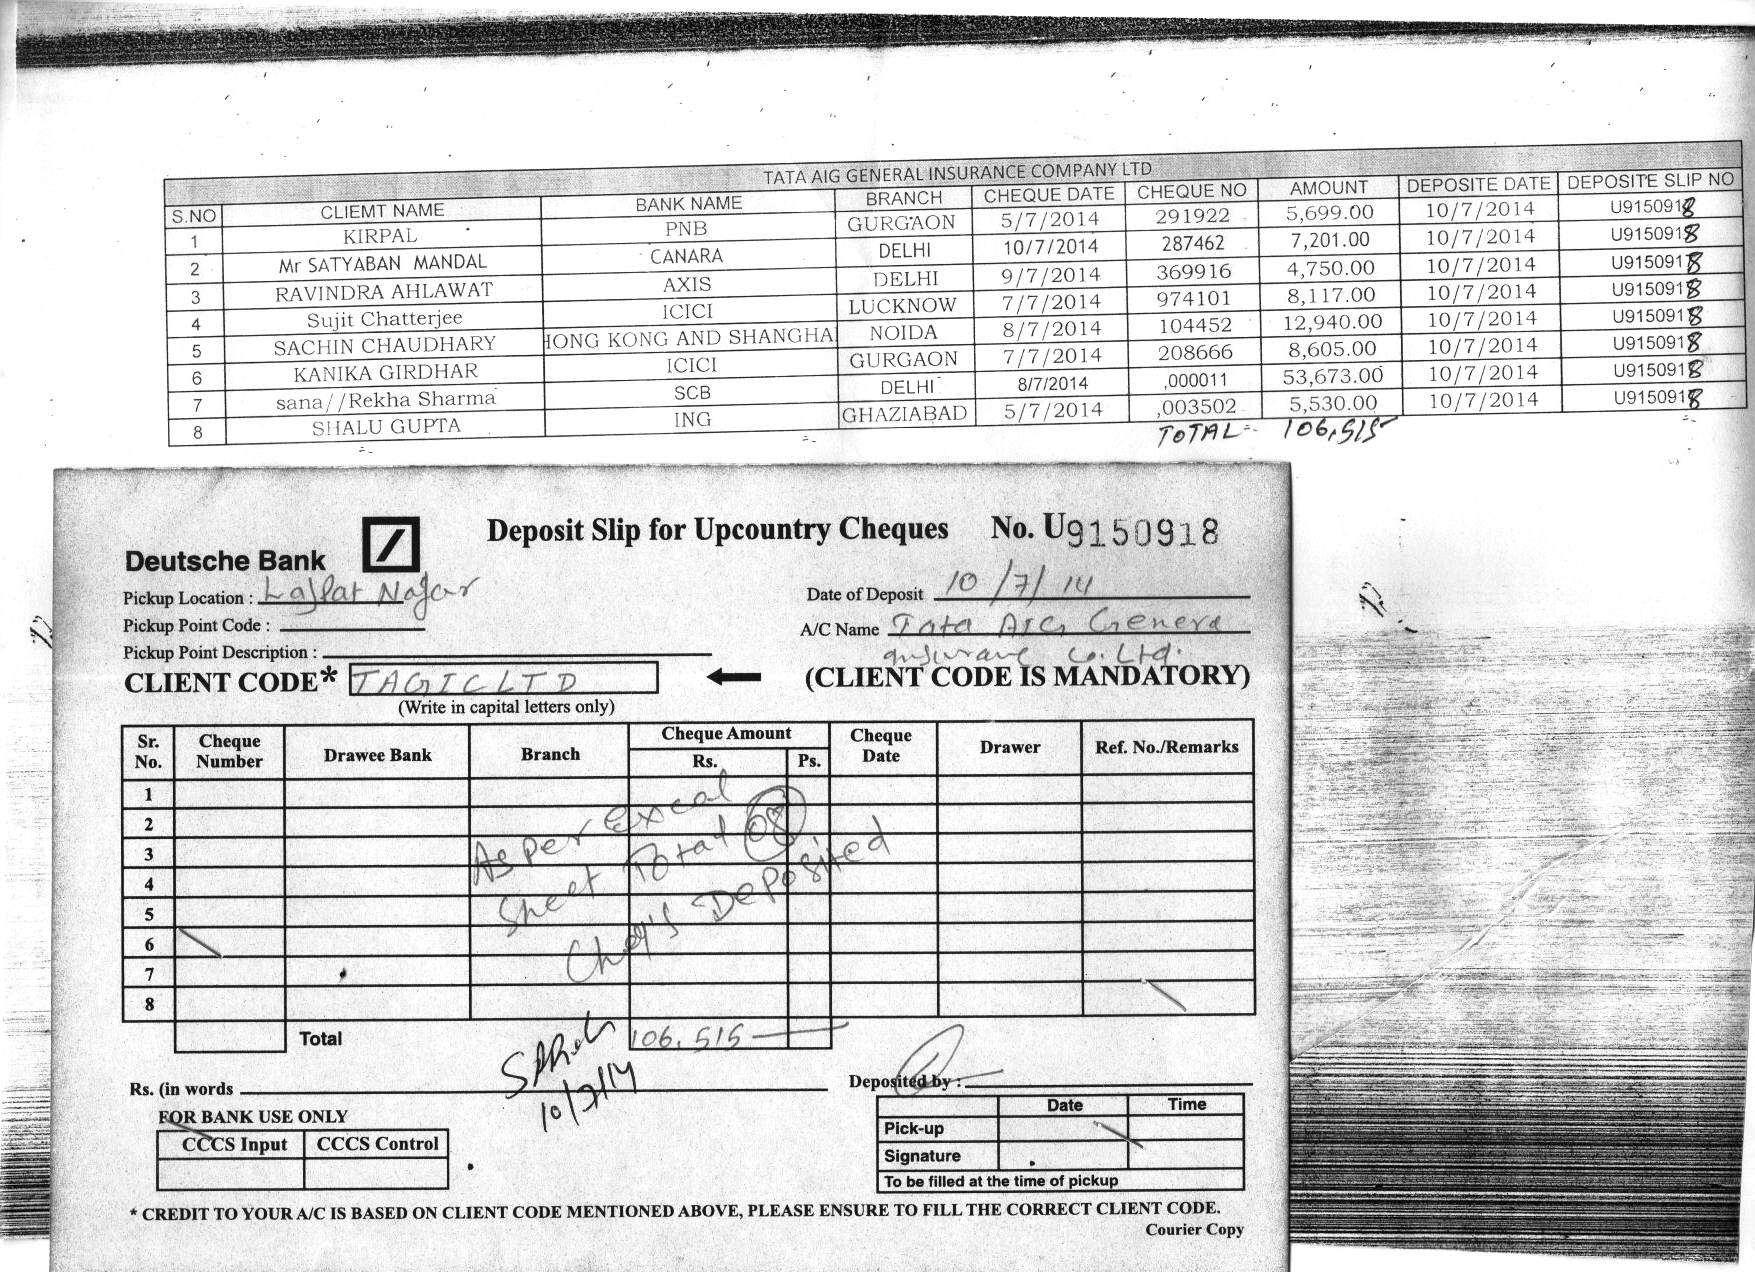 TATA AIG GENERAL INSURANCE COMPANY LTD
S.NO CLIEMT NAME BANK NAME BRANCH CHEQUE DATE CHEQUE NO AMOUNT DEPOSITE DATE DEPOSITE SLIP NO
1 KIRPAL PNB GURGAON 5/7/2014 291922 5,699.00 10/7/2014 U9150918
2 Mr SATYABAN MANDAL CANARA DELHI 10/7/2014 287462 7,201.00 10/7/2014 U9150918
3 RAVINDRA AHLAWAT AXIS DELHI 9/7/2014 369916 4,750.00 10/7/2014 U9150918
4 Sujit Chatterjee ICICI LUCKNOW 7/7/2014 974101 8,117.00 10/7/2014 U9150918
5 SACHIN CHAUDHARY HONG KONG AND SHANGHA NOIDA 8/7/2014 104452 12,940.00 10/7/2014 U9150918
6 KANIKA GIRDHAR ICICI GURGAON 7/7/2014 208666 8,605.00 10/7/2014 U9150918
7 sana//Rekha Sharma SCB DELHI 8/7/2014 ,000011 53,673.00 10/7/2014 U9150918
8 SHALU GUPTA ING GHAZIABAD 5/7/2014 ,003502 5,530.00 10/7/2014 U9150918
TOTAL = 106,515
Deutsche Bank Deposit Slip for Upcountry Cheques No. U9150918
Pickup Location : Lajpat Nagar Date of Deposit 10/7/14
Pickup Point Code : A/C Name Tata AIG Genera
Pickup Point Description : insurance Co. Ltd.
CLIENT CODE* TAGICLTD (CLIENT CODE IS MANDATORY)
(Write in capital letters only)
Sr. No. Cheque Number Drawee Bank Branch Cheque Amount Rs. Ps. Cheque Date Drawer Ref. No./Remarks
1
2
3
4
5
6
7
8
As per Excal
Sheet Total 08
Chq's Deposited
Total 106,515
Rs. (in words Deposited by :
10/7/14
FOR BANK USE ONLY
CCCS Input CCCS Control
Date Time
Pick-up
Signature
To be filled at the time of pickup
* CREDIT TO YOUR A/C IS BASED ON CLIENT CODE MENTIONED ABOVE, PLEASE ENSURE TO FILL THE CORRECT CLIENT CODE.
Courier Copy